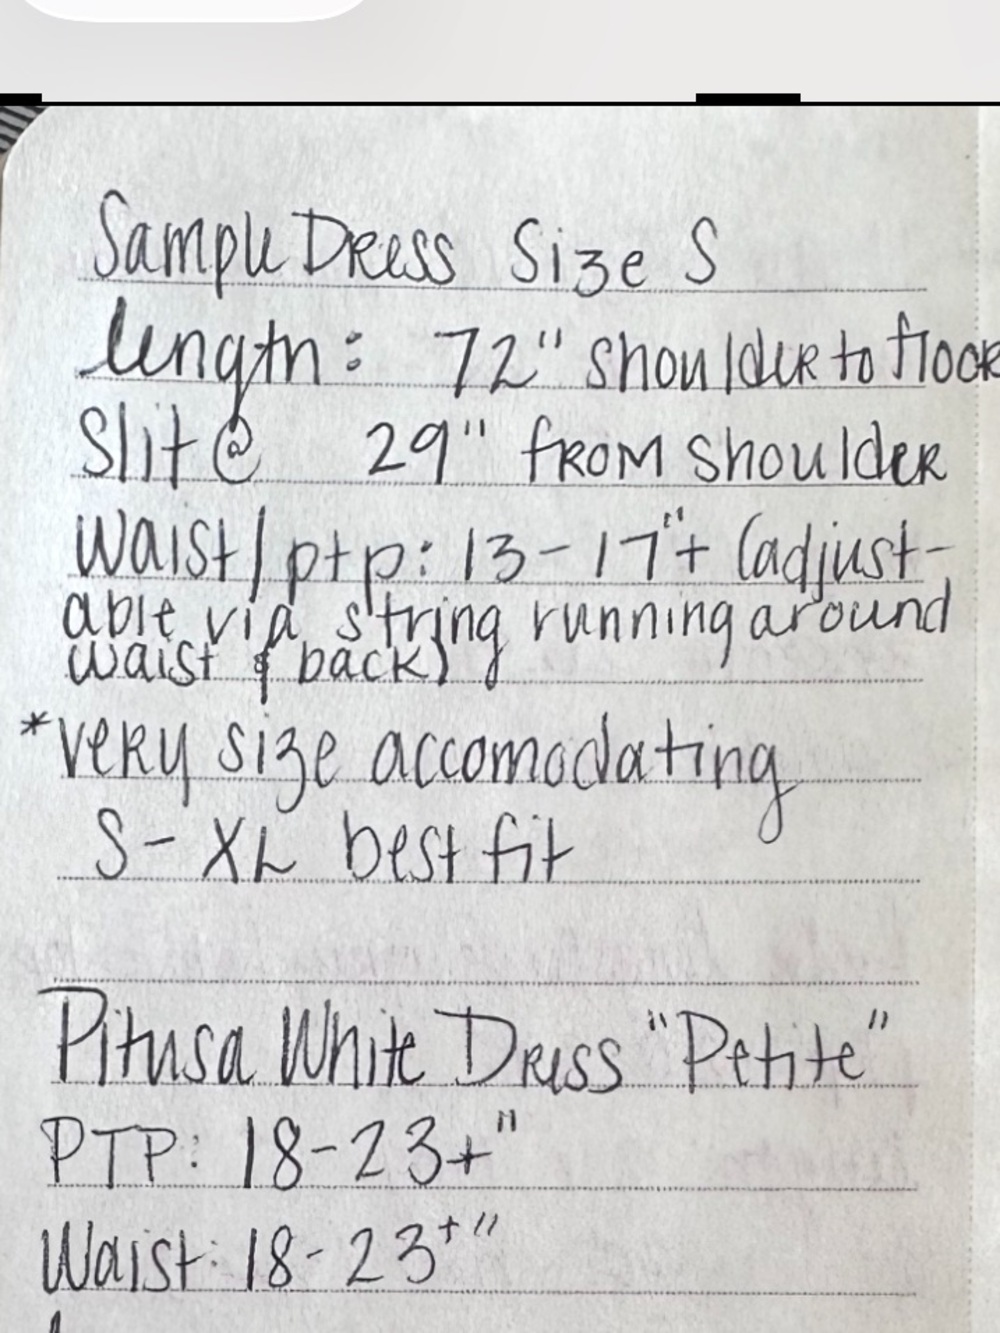 Sample Dress Size S
length: 72" shoulder to floor
Slit @ 29" from shoulder
Waist/ptp: 13-17"+ (adjust-
able via string running around
waist & back)
*very size accomodating
S-XL best fit
Pitusa White Dress "Petite"
PTP: 18-23+"
Waist: 18-23+"